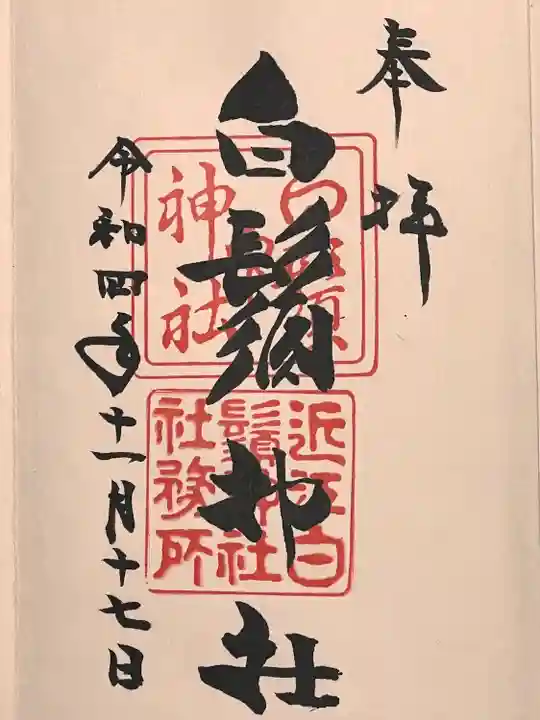 奉拝
白鬚神社
令和四年十一月十七日
神社
近江白
鬚神社
社務所